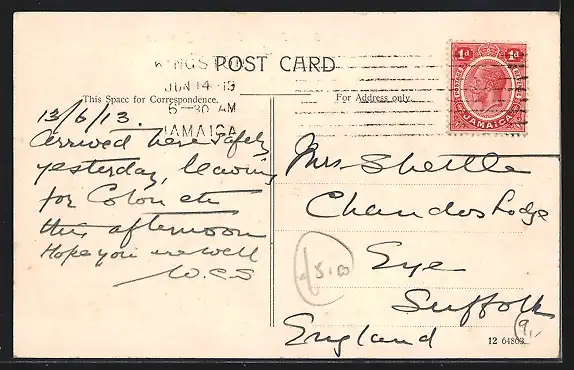 KINGSTON
POST CARD
JUN 14 13
6-30 AM
JAMAICA
This Space for Correspondence.
For Address only.
1d 1d
POSTAGE
JAMAICA
13/6/13.
Arrived here safely
yesterday, leaving
for Colon etc
this afternoon
Hope you are well
W.C.S
Mrs. Shuttle
Chandos Lodge
Eye
Suffolk
England
£5.00
9,-
12 64803